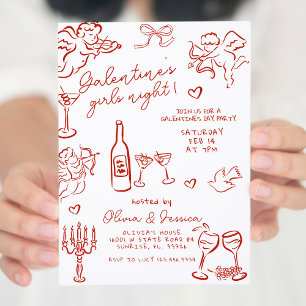 Galentine's
girls night!
JOIN US FOR A
GALENTINES DAY PARTY
SATURDAY
FEB 14
AT 7PM
hosted by
Olivia & Jessica
OLIVIA'S HOUSE
16001 W STATE ROAD 84
SUNRISE, FL, 33326
RSVP TO LUCY 123.456.7890